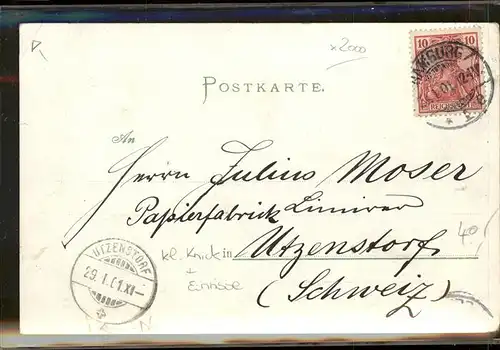 x2000
10 10
REICHSPOST
HAMBURG
POSTKARTE.
An
Herrn Julius Moser
Papierfabrick
in Utzenstorf
(Schweiz)
kl. Knick
+
Einrisse
40
UTZENSTORF
29. I. 01. XI-